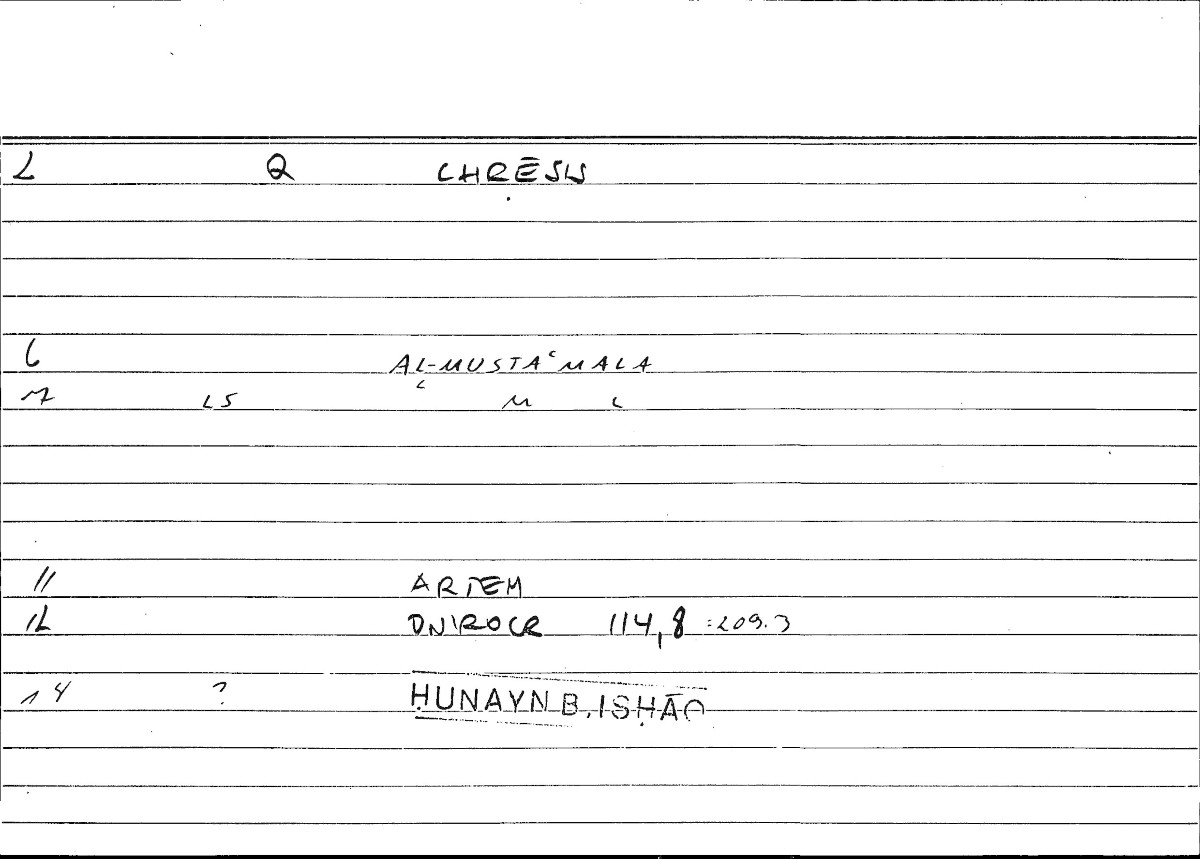 2 Q CHRĒSIS
6 AL-MUSTAʿMALA
7 LS M L
11 ARTEM
12 ONIROCR 114,8 :209.3
14 ? ḤUNAYN B. ISḤĀQ